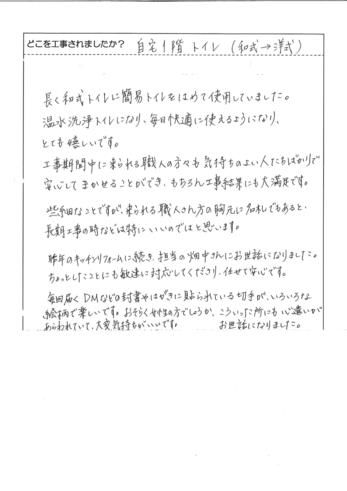 どこを工事されましたか? 自宅1階 トイレ (和式→洋式)
長く和式トイレに簡易トイレをはめて使用していました。
温水洗浄トイレになり、毎日快適に使えるようになり、
とても嬉しいです。
工事期間中に来られる職人の方々も気持ちのよい人たちばかりで
安心してまかせることができ、もちろん工事結果にも大満足です。
些細なことですが、来られる職人さん方の胸元に名札でもあると、
長期工事の時などは特にいいのではと思います。
昨年のキッチンリフォームに続き、担当の畑中さんにお世話になりました。
ちょっとしたことにも敏速に対応してくださり、任せて安心です。
毎回届くDMなどの封書やはがきに貼られている切手が、いろいろな
絵柄で楽しいです。おそらく女性の方でしょうか、こういった所にも心遣いが
あらわれていて、大変気持ちがいいです。 お世話になりました。